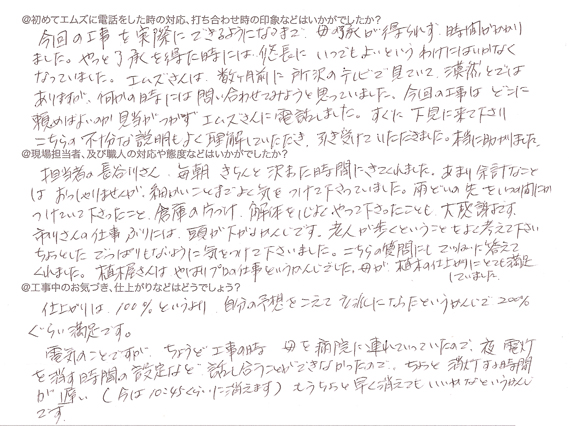 @初めてエムズに電話をした時の対応、打ち合わせ時の印象などはいかがでしたか?
今回の工事を実際にできるようになるまで、母の了承が得られず、時間がかかり
ました。やっと了承を得た時には、悠長に いつでもよいというわけにはいかなく
なっていました。エムズさんは、数ヶ月前に所沢のテレビで見ていて、漠然とでは
ありますが、何かの時には問い合わせてみようと思っていました。今回の工事は どこに
頼めばよいのか 見当がつかず エムズさんに電話しました。すぐに下見に来て下さり
こちらの不十分な説明もよく理解していただき、引き受けていただきました。本当に助かりました。
@現場担当者、及び職人の対応や態度などはいかがでしたか?
担当者の長谷川さん、毎朝 きちんと決まった時間にきてくれました。あまり余計なこと
は おっしゃりませんが、細かいことまでよく気をつけて下さっていました。雨どいの先をいつの間にか
つけていて下さったこと、倉庫の片づけ、解体を心よくやって下さったことも、大感謝です。
市川さんの仕事ぶりには、頭が下がるかんじです。老人が歩くということをよく考えて下さい
ちょっとした でっぱりもないように 気をつけて下さいました。こちらの質問にも ていねいに答えて
くれました。植木屋さんは やっぱりプロの仕事というかんじでした。母が、植木の仕上りにとても満足
していました。
@工事中のお気づき、仕上がりなどはどうでしょう?
仕上がりは、100%というより、自分の予想をこえて きれいになったというかんじで 200%
ぐらい満足です。
電気のことですが、ちょうど工事の時 母を病院に連れていっていたので、夜、電灯
を消す時間の設定など、話し合うことができなかったので、ちょっと 消灯する時間
が 遅い (今は10:45くらいに消えます) もうちょっと早く消えてもいいかなというかんじ
です。